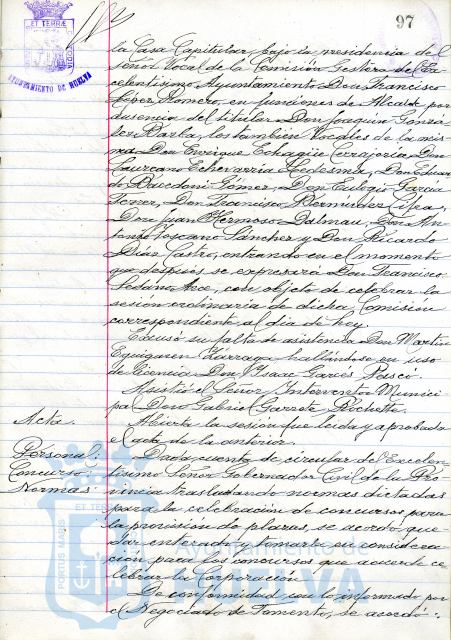 97
ET TERRÆ
AYUNTAMIENTO DE HUELVA
la Casa Capitular, bajo la presidencia del
Señor Vocal de la Comisión Gestora del Ex-
celentísimo Ayuntamiento Don Francisco
López Romero, en funciones de Alcalde por
ausencia del titular Don Joaquín Gonzá-
lez Barba, los también Vocales de la mis-
ma Don Enrique Echagüe Cerrajería, Don
Laureano Echevarría Ledesma, Don Eduar-
do Bacedoni Gómez, Don Eulogio García
Don Francisco Bermúdez
Don Juan Hermoso Dalmau, Don An-
tonio Toscano Sánchez y Don Ricardo
Díaz Castro, entrando en el momento
que después se expresará Don Francisco
Sedano Arce, con objeto de celebrar la
sesión ordinaria de dicha Comisión
correspondiente al día de hoy.
Excusó su falta de asistencia Don Martín
Eguiguren hallándose en uso
de licencia Don Isaac Garcés
Asistió el Señor Interventor Munici-
pal Don Gabriel Garrete Rochette.
Acta.
Abierta la sesión fue leída y aprobada
el acta de la anterior.
Personal:
Concurso
Normas
Dada cuenta de circular del Excelen-
tísimo Señor Gobernador Civil de la Pro-
vincia trasladando normas dictadas
para la celebración de concursos para
la provisión de plazas, se acordó que-
dar enterado y tomarlo en considera-
ción para los concursos que acuerde ce-
lebrar la Corporación.
De conformidad con lo informado por
el Negociado de Fomento, se acordó:
PORTUS MARIS
ET TERRÆ
Ayuntamiento de
HUELVA